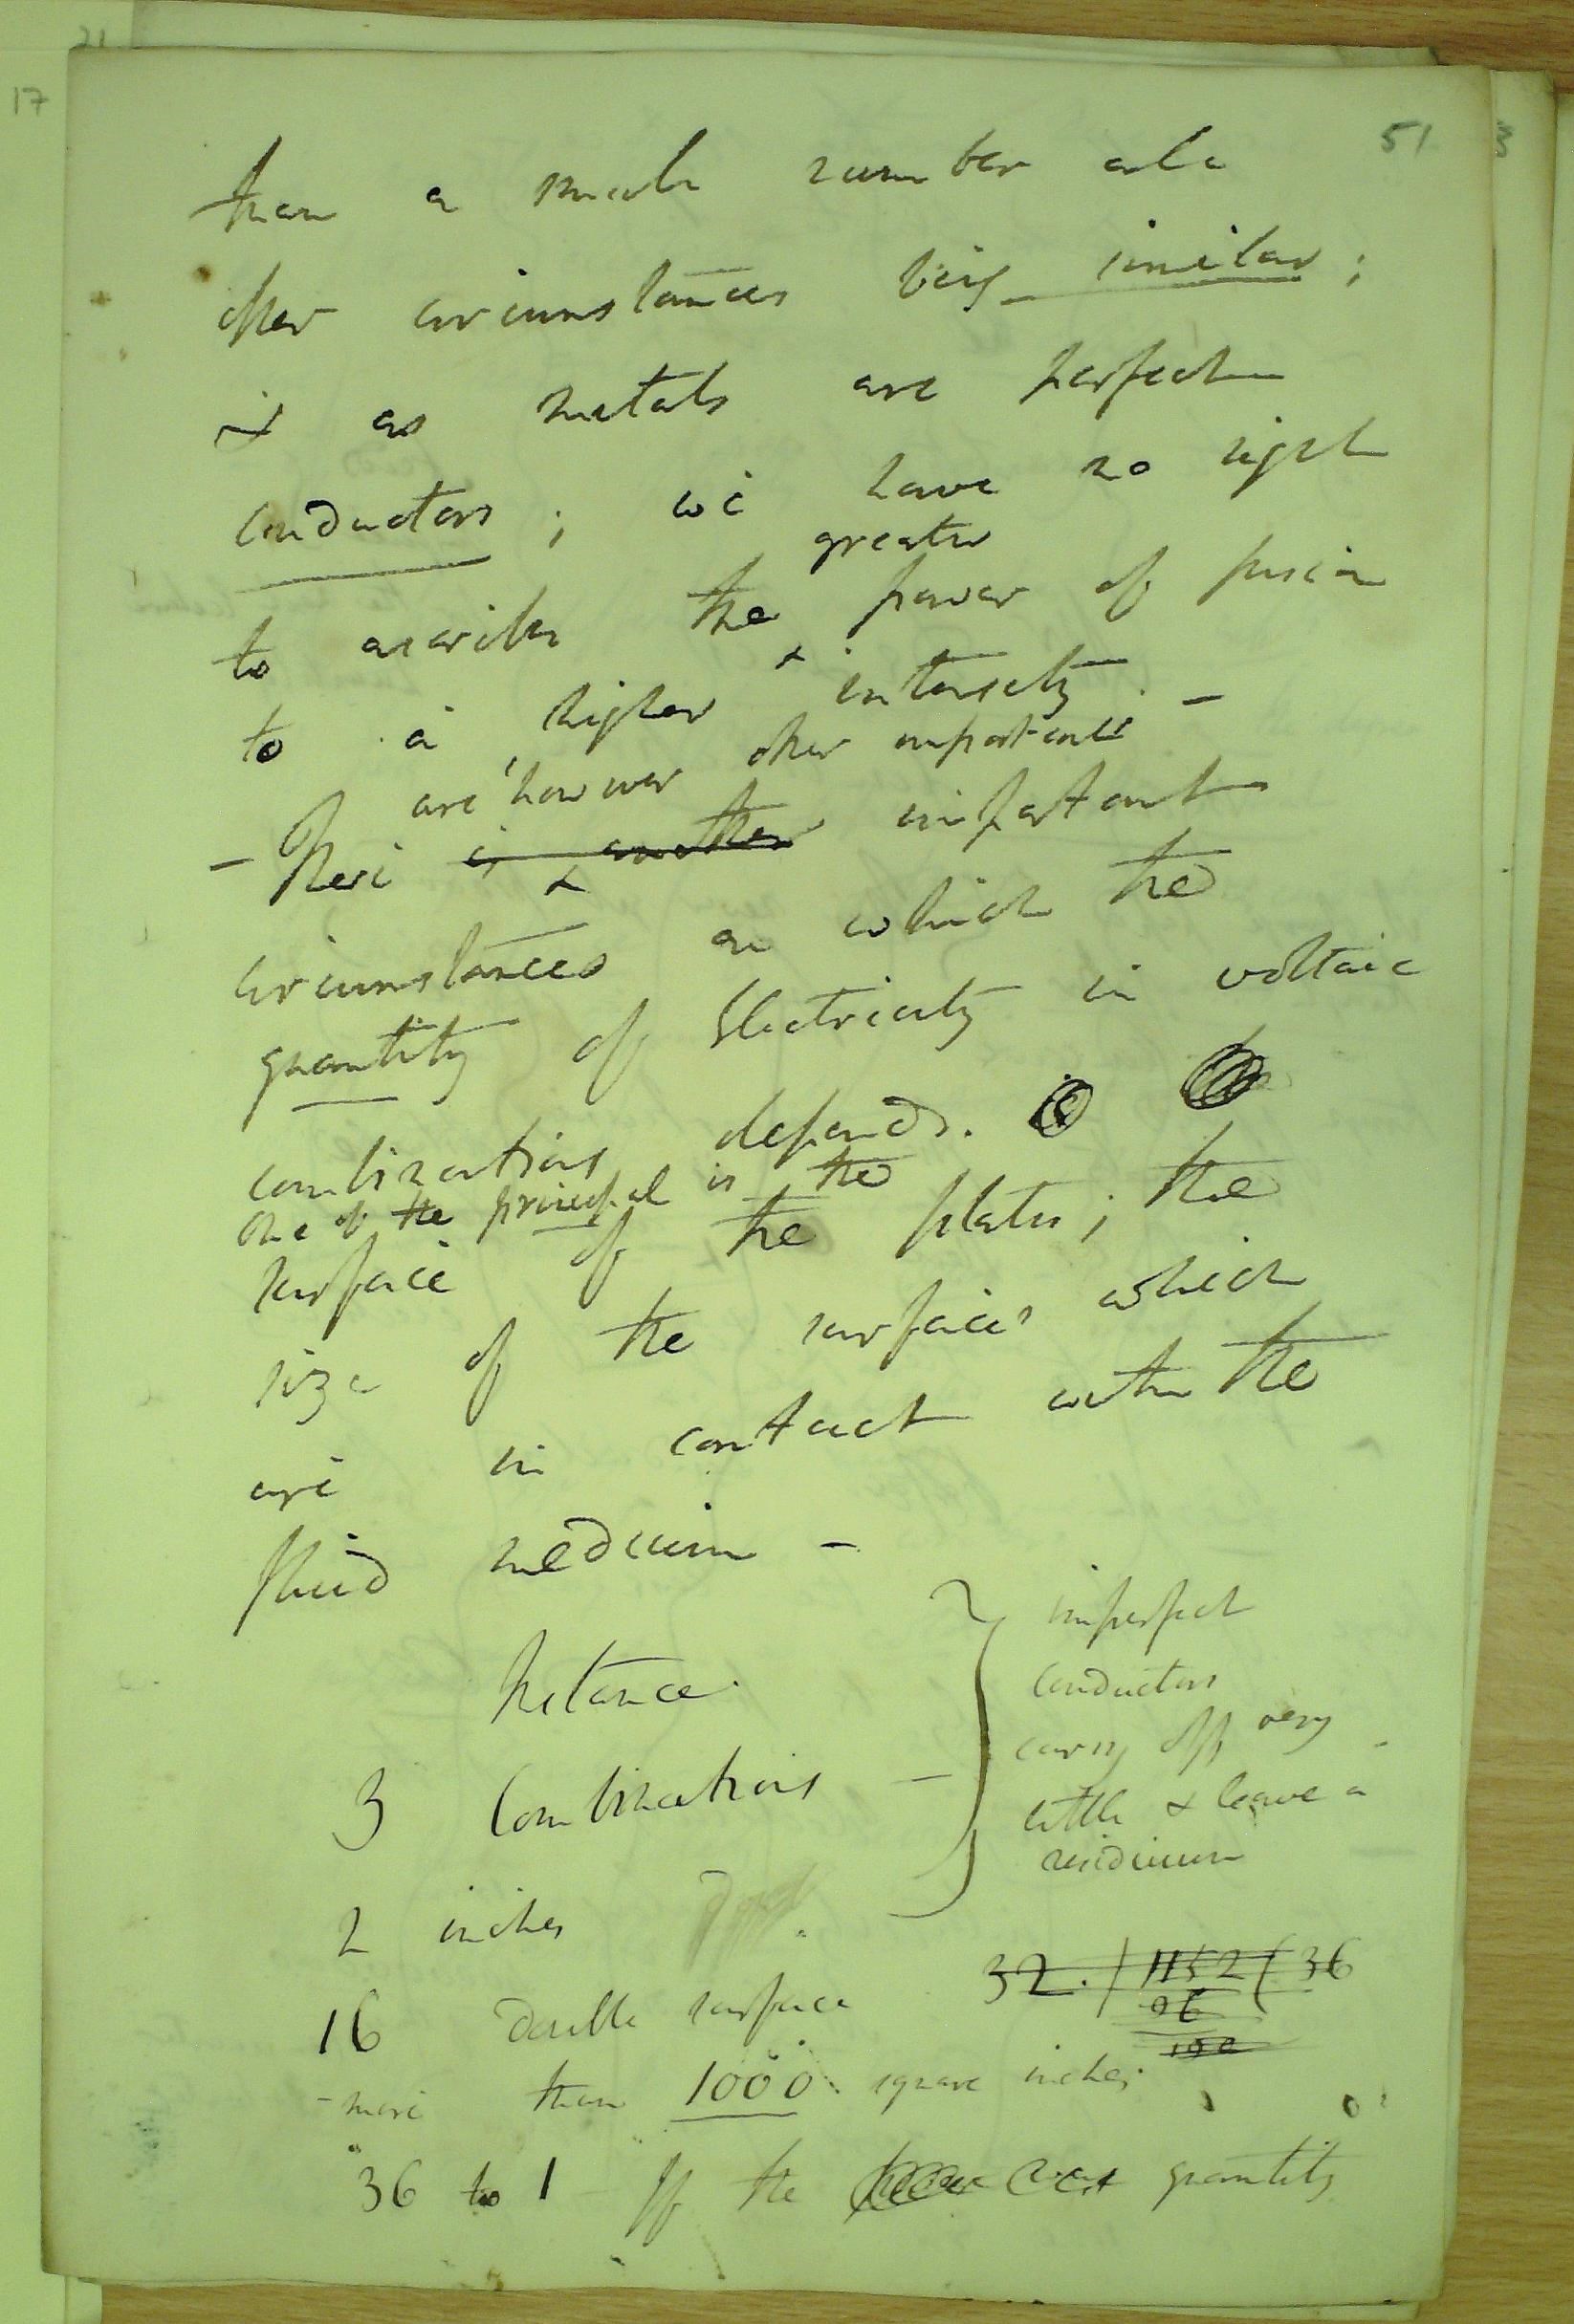 51
than a small number all
other circumstances being similar;
& as metals are perfect
conductors; we have no right
greater
to ascribe the power of fusion
to a higher intensity. –
are however other important
– There is another important
circumstances on which the
quantity of Electricity in voltaic
combinations depends.
One of the principal is the
surface of the plates; the
size of the surfaces which
are in contact with the
fluid medium –
Instance.
3 Combinations –
2 inches
16 double surface
imperfect
conductors
carry off very
little & leave a
residuum
32.) 1152 ( 36
96
192
– more than 1000 square inches.
36 to 1 If the quantity
17
21